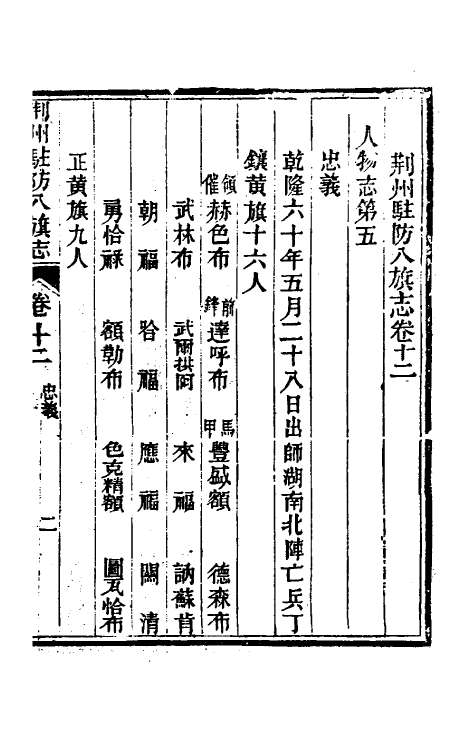 荆州駐防八旗志卷十二
人物志第五
忠義
乾隆六十年五月二十八日出師湖南北陣亡兵丁
鑲黄旗十六人
領催赫色布 前鋒達呼布 馬甲豐盛額 德森布
武林布 武爾拱阿 來福 訥蘇肯
朝福 哈福 應福 關清
勇恰祿 額勒布 色克精額 圖瓦恰布
正黄旗九人
荆州駐防八旗志 卷十二 忠義